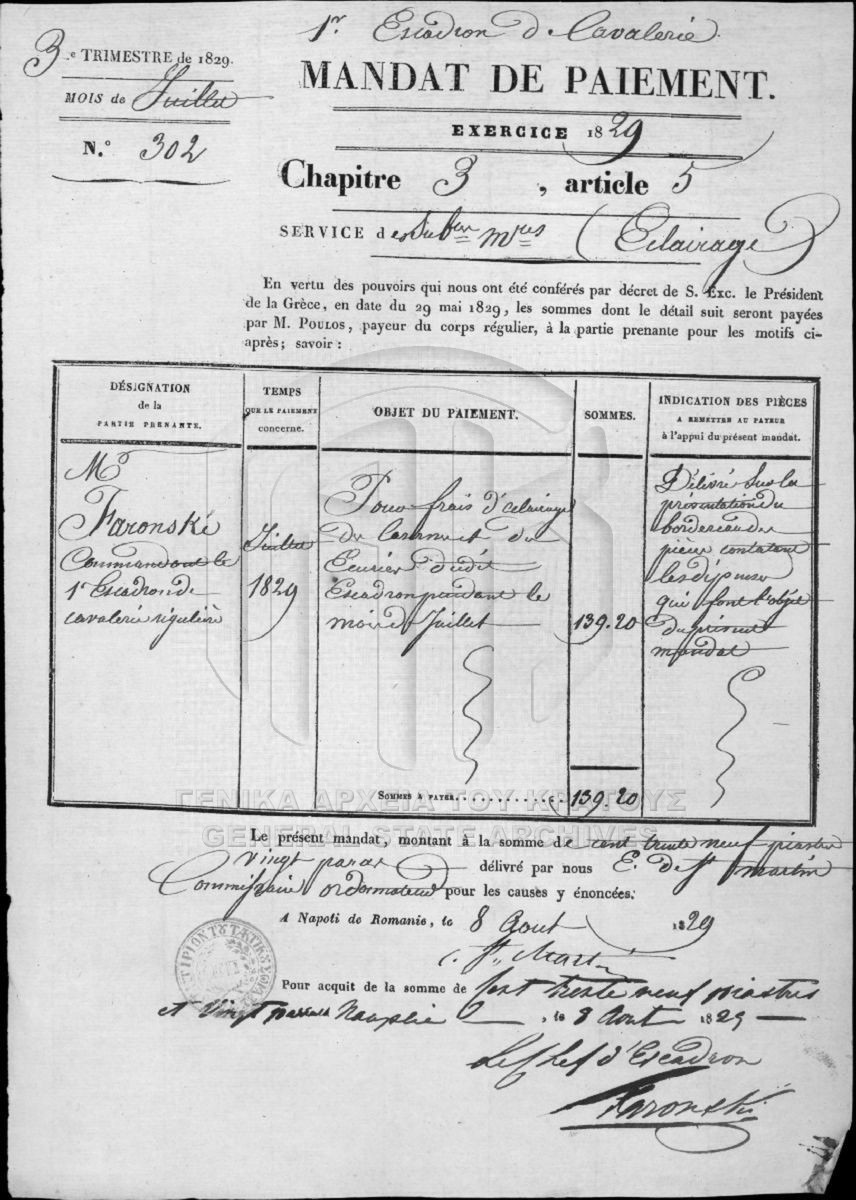 1r Escadron de Cavalerie.
3e TRIMESTRE de 1829.
MOIS de Juillet
N.° 302
MANDAT DE PAIEMENT.
EXERCICE 1829
Chapitre 3, article 5
SERVICE des Subces mres (Eclairage)
En vertu des pouvoirs qui nous ont été conférés par décret de S. EXC. le Président
de la Grèce, en date du 29 mai 1829, les sommes dont le détail suit seront payées
par M. POULOS, payeur du corps régulier, à la partie prenante pour les motifs ci-
après; savoir :
DÉSIGNATION
de la
PARTIE PRENANTE.
TEMPS
QUE LE PAIEMENT
concerne.
OBJET DU PAIEMENT.
SOMMES.
INDICATION DES PIÈCES
A REMETTRE AU PAYEUR
à l'appui du présent mandat.
Mr
Faronski
Commandant le
1r Escadron de
cavalerie régulière
Juillet
1829
Pour frais d'eclairage
du caserne et du
Ecuries dudit
Escadron pendant le
mois de Juillet
139.20
Délivré sur la
présentation du
bordereau des
pièces constatant
les dépenses
qui font l'objet
du présent
mandat
SOMMES A PAYER 139.20
ΓΕΝΙΚΑ ΑΡΧΕΙΑ ΤΟΥ ΚΡΑΤΟΥΣ
GENERAL STATE ARCHIVES
Le présent mandat, montant à la somme de cent trente neuf piastres
vingt paras délivré par nous E. de St martin
Commissaire ordonnateur pour les causes y énoncées.
A Napoli de Romanie, le 8 Aout 1829
St. Martin
Pour acquit de la somme de Cent trente neuf piastres
et vingt paras Nauplie, le 8 Aout 1829
Le Chef d'Escadron
Faronski